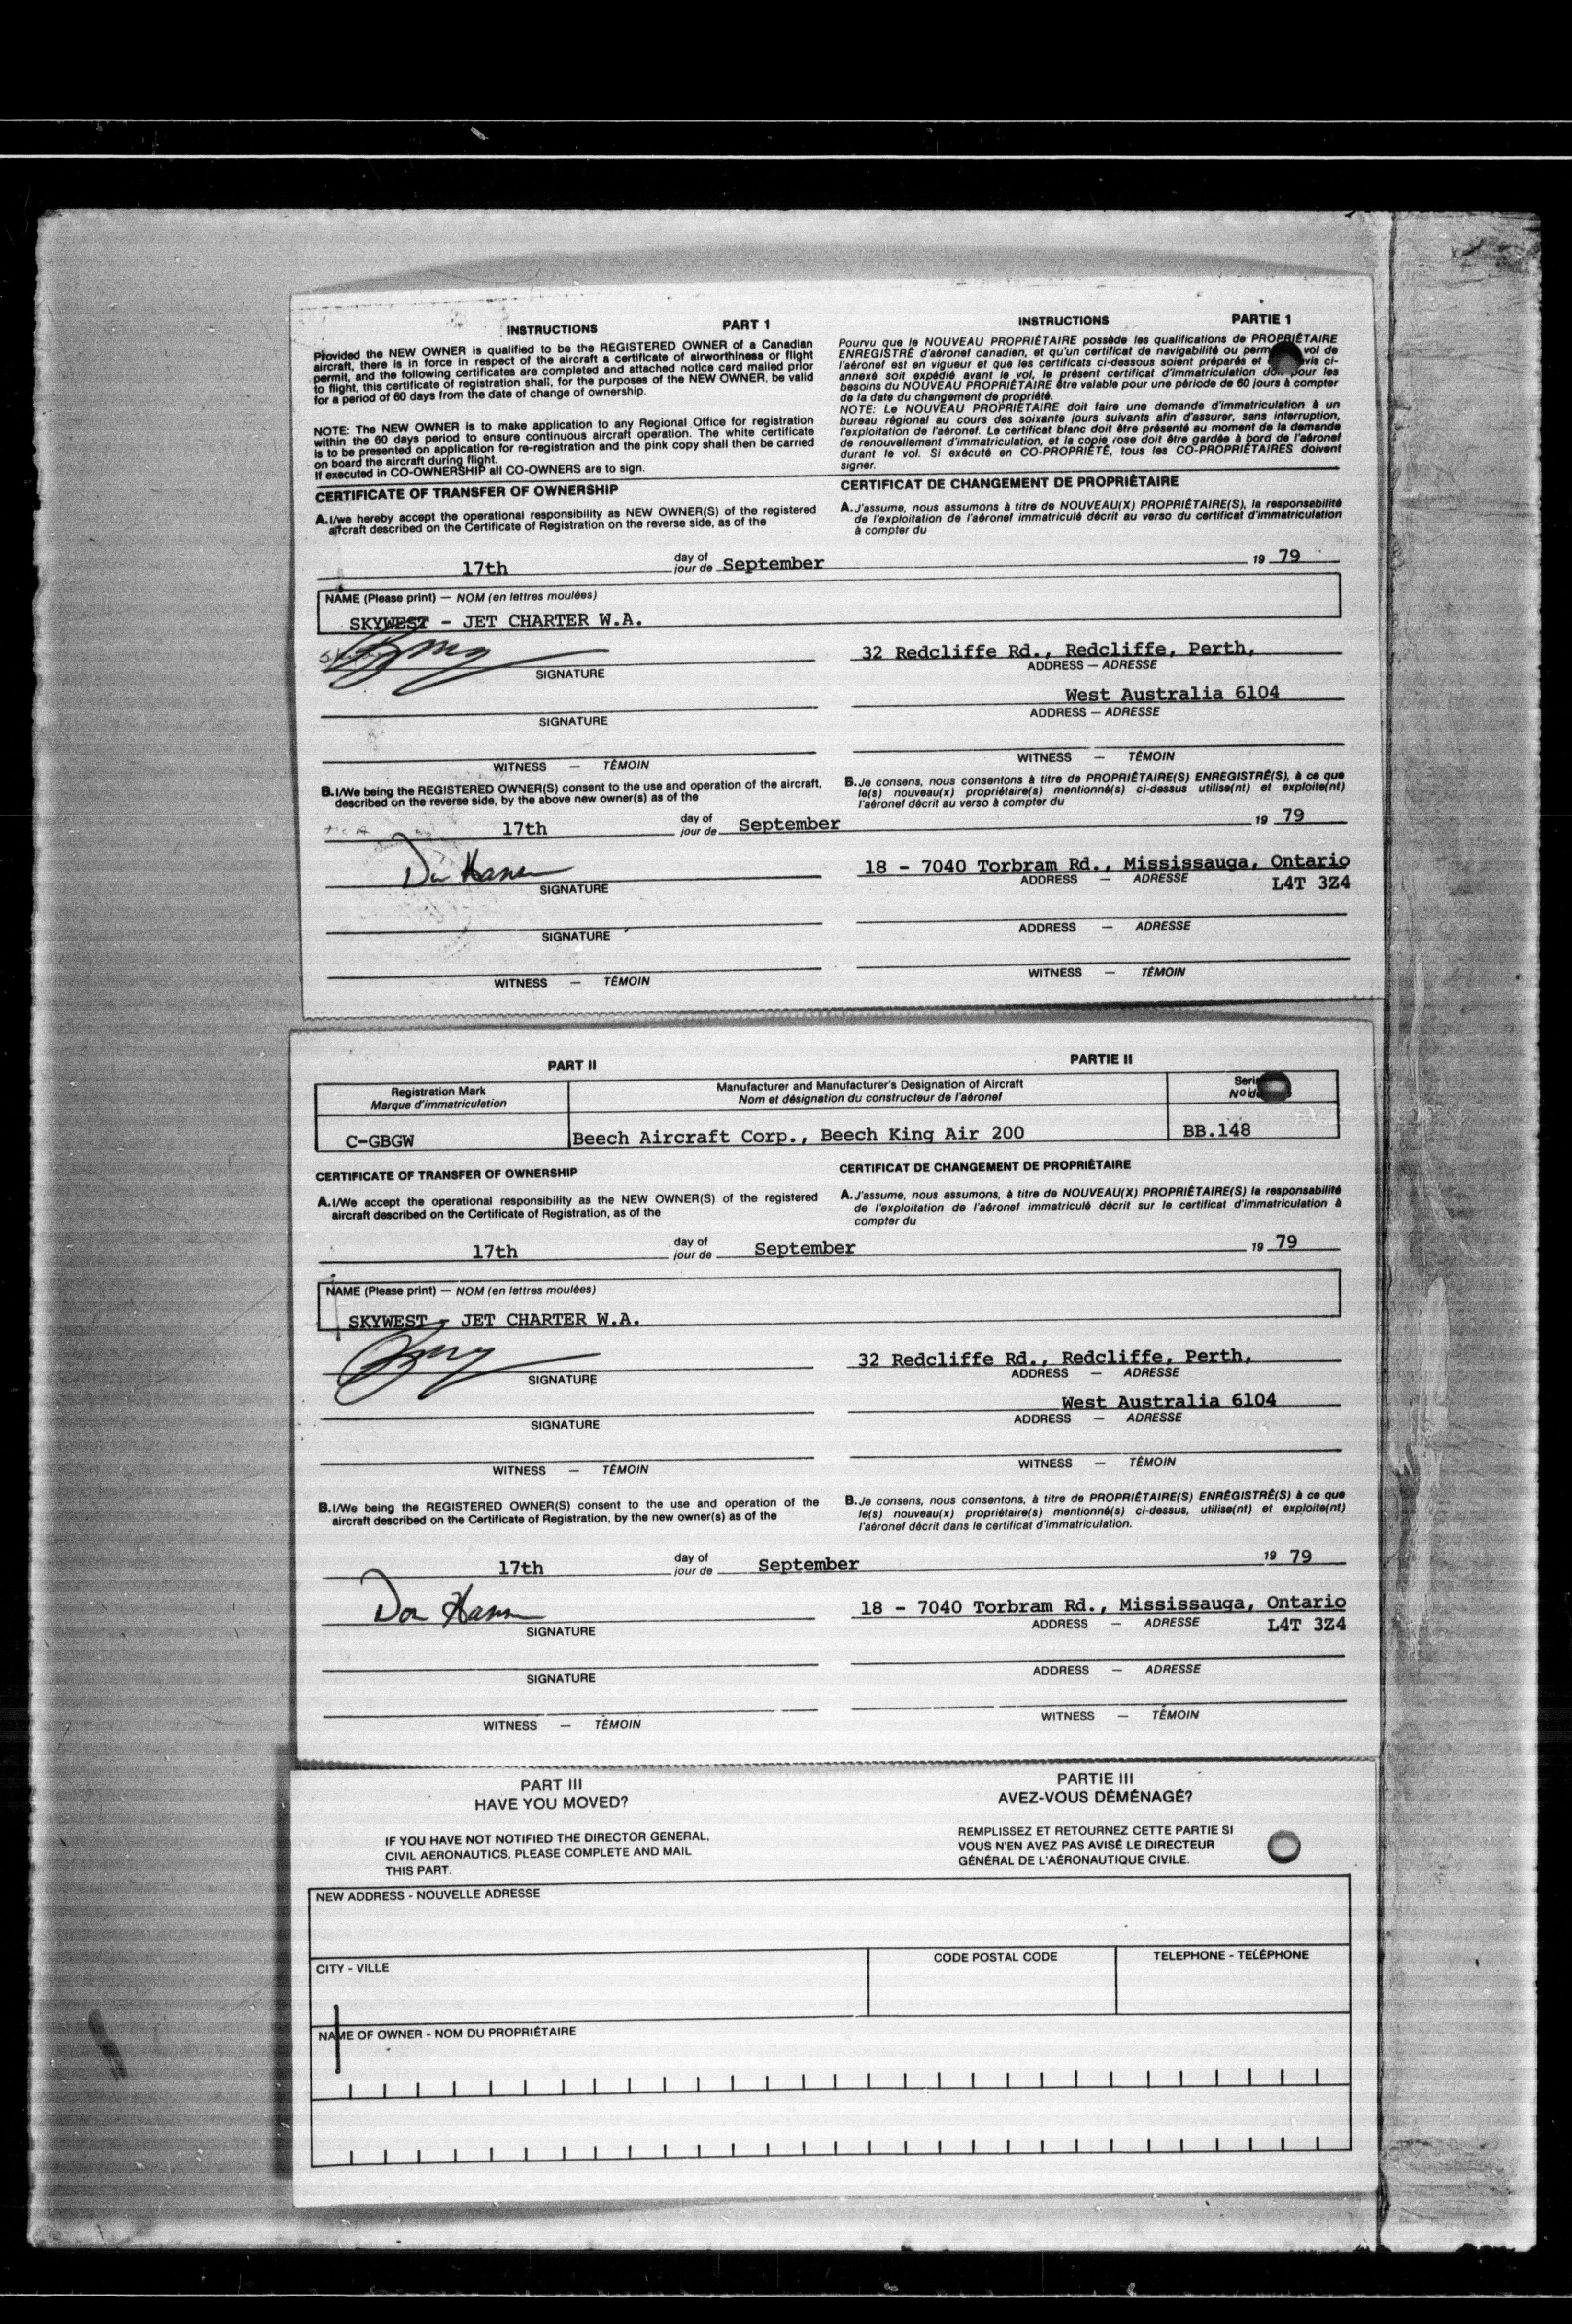 INSTRUCTIONS PART 1
Provided the NEW OWNER is qualified to be the REGISTERED OWNER of a Canadian
aircraft, there is in force in respect of the aircraft a certificate of airworthiness or flight
permit, and the following certificates are completed and attached notice card mailed prior
to flight, this certificate of registration shall, for the purposes of the NEW OWNER, be valid
for a period of 60 days from the date of change of ownership.
NOTE: The NEW OWNER is to make application to any Regional Office for registration
within the 60 days period to ensure continuous aircraft operation. The white certificate
is to be presented on application for re-registration and the pink copy shall then be carried
on board the aircraft during flight.
If executed in CO-OWNERSHIP all CO-OWNERS are to sign.
INSTRUCTIONS PARTIE 1
Pourvu que le NOUVEAU PROPRIÉTAIRE possède les qualifications de PROPRIÉTAIRE
ENREGISTRÉ d'aéronef canadien, et qu'un certificat de navigabilité ou vol de
l'aéronef est en vigueur et que les certificats ci-dessous soient préparés et ci-
annexé soit expédié avant le vol, le présent certificat d'immatriculation pour les
besoins du NOUVEAU PROPRIÉTAIRE être valable pour une période de 60 jours à compter
de la date du changement de propriété.
NOTE: Le NOUVEAU PROPRIÉTAIRE doit faire une demande d'immatriculation à un
bureau régional au cours des soixante jours suivants afin d'assurer, sans interruption,
l'exploitation de l'aéronef. Le certificat blanc doit être présenté au moment de la demande
de renouvellement d'immatriculation, et la copie rose doit être gardée à bord de l'aéronef
durant le vol. Si exécuté en CO-PROPRIÉTÉ, tous les CO-PROPRIÉTAIRES doivent
signer.
CERTIFICATE OF TRANSFER OF OWNERSHIP
A. I/we hereby accept the operational responsibility as NEW OWNER(S) of the registered
aircraft described on the Certificate of Registration on the reverse side, as of the
CERTIFICAT DE CHANGEMENT DE PROPRIÉTAIRE
A. J'assume, nous assumons à titre de NOUVEAU(X) PROPRIÉTAIRE(S), la responsabilité
de l'exploitation de l'aéronef immatriculé décrit au verso du certificat d'immatriculation
à compter du
17th day of jour de September 19 79
NAME (Please print) — NOM (en lettres moulées)
SKYWEST - JET CHARTER W.A.
32 Redcliffe Rd., Redcliffe, Perth,
SIGNATURE ADDRESS — ADRESSE
West Australia 6104
SIGNATURE ADDRESS — ADRESSE
WITNESS — TÉMOIN WITNESS — TÉMOIN
B. I/We being the REGISTERED OWNER(S) consent to the use and operation of the aircraft,
described on the reverse side, by the above new owner(s) as of the
B. Je consens, nous consentons à titre de PROPRIÉTAIRE(S) ENREGISTRÉ(S), à ce que
le(s) nouveau(x) propriétaire(s) mentionné(s) ci-dessus utilise(nt) et exploite(nt)
l'aéronef décrit au verso à compter du
17th day of jour de September 19 79
18 - 7040 Torbram Rd., Mississauga, Ontario
SIGNATURE ADDRESS — ADRESSE L4T 3Z4
SIGNATURE ADDRESS — ADRESSE
WITNESS — TÉMOIN WITNESS — TÉMOIN
PART II PARTIE II
Registration Mark
Marque d'immatriculation
Manufacturer and Manufacturer's Designation of Aircraft
Nom et désignation du constructeur de l'aéronef
C-GBGW Beech Aircraft Corp., Beech King Air 200 BB.148
CERTIFICATE OF TRANSFER OF OWNERSHIP
A. I/We accept the operational responsibility as the NEW OWNER(S) of the registered
aircraft described on the Certificate of Registration, as of the
CERTIFICAT DE CHANGEMENT DE PROPRIÉTAIRE
A. J'assume, nous assumons, à titre de NOUVEAU(X) PROPRIÉTAIRE(S) la responsabilité
de l'exploitation de l'aéronef immatriculé décrit sur le certificat d'immatriculation à
compter du
17th day of jour de September 19 79
NAME (Please print) — NOM (en lettres moulées)
SKYWEST - JET CHARTER W.A.
32 Redcliffe Rd., Redcliffe, Perth,
SIGNATURE ADDRESS — ADRESSE
West Australia 6104
SIGNATURE ADDRESS — ADRESSE
WITNESS — TÉMOIN WITNESS — TÉMOIN
B. I/We being the REGISTERED OWNER(S) consent to the use and operation of the
aircraft described on the Certificate of Registration, by the new owner(s) as of the
B. Je consens, nous consentons, à titre de PROPRIÉTAIRE(S) ENRÉGISTRÉ(S) à ce que
le(s) nouveau(x) propriétaire(s) mentionné(s) ci-dessus, utilise(nt) et exploite(nt)
l'aéronef décrit dans le certificat d'immatriculation.
17th day of jour de September 19 79
Don 18 - 7040 Torbram Rd., Mississauga, Ontario
SIGNATURE ADDRESS — ADRESSE L4T 3Z4
SIGNATURE ADDRESS — ADRESSE
WITNESS — TÉMOIN WITNESS — TÉMOIN
PART III
HAVE YOU MOVED?
IF YOU HAVE NOT NOTIFIED THE DIRECTOR GENERAL,
CIVIL AERONAUTICS, PLEASE COMPLETE AND MAIL
THIS PART.
PARTIE III
AVEZ-VOUS DÉMÉNAGÉ?
REMPLISSEZ ET RETOURNEZ CETTE PARTIE SI
VOUS N'EN AVEZ PAS AVISÉ LE DIRECTEUR
GÉNÉRAL DE L'AÉRONAUTIQUE CIVILE.
NEW ADDRESS - NOUVELLE ADRESSE
CITY - VILLE CODE POSTAL CODE TELEPHONE - TELÉPHONE
NAME OF OWNER - NOM DU PROPRIÉTAIRE